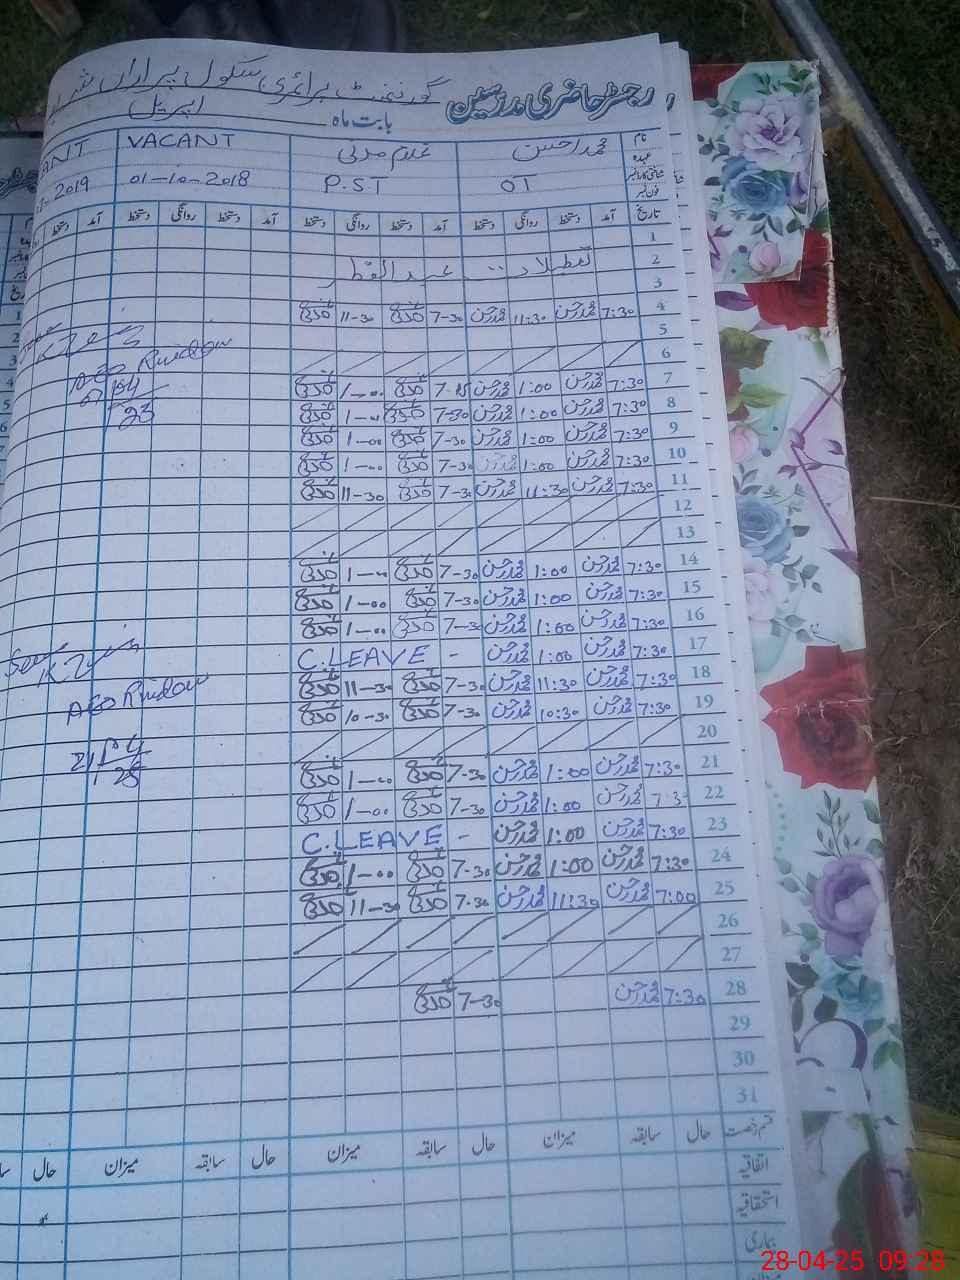 رجسٹر حاضری مدرسین گورنمنٹ پرائمری سکول پیراراں
بابت ماہ اپریل
نام محمد احسن غلام مدنی VACANT ANT
عہدہ
شناختی کارڈ نمبر OT P.ST 01-10-2018 2019
فون نمبر
تاریخ آمد دستخط روانگی دستخط آمد دستخط روانگی دستخط آمد دستخط روانگی دستخط آمد دستخط
1
2 تعطیلات عید الفطر
3
4 7:30 محمد احسن 11:30 محمد احسن 7-30 مدنی 11-30 مدنی
5
6
7 7:30 محمد احسن 1:00 محمد احسن 7-25 مدنی 1-00 مدنی
8 7:30 محمد احسن 1:00 محمد احسن 7-30 مدنی 1-00 مدنی
9 7:30 محمد احسن 1:00 محمد احسن 7-30 مدنی 1-00 مدنی
10 7:30 محمد احسن 1:00 محمد احسن 7-30 مدنی 1-00 مدنی
11 7:30 محمد احسن 11:30 محمد احسن 7-30 مدنی 11-30 مدنی
12
13
14 7:30 محمد احسن 1:00 محمد احسن 7-30 مدنی 1-00 مدنی
15 7:30 محمد احسن 1:00 محمد احسن 7-30 مدنی 1-00 مدنی
16 7:30 محمد احسن 1:00 محمد احسن 7-30 مدنی 1-00 مدنی
17 7:30 محمد احسن 1:00 محمد احسن C.LEAVE -
18 7:30 محمد احسن 11:30 محمد احسن 7-30 مدنی 11-30 مدنی
19 7:30 محمد احسن 10:30 محمد احسن 7-30 مدنی 10-30 مدنی
20
21 7:30 محمد احسن 1:00 محمد احسن 7-30 مدنی 1-00 مدنی
22 7:30 محمد احسن 1:00 محمد احسن 7-30 مدنی 1-00 مدنی
23 7:30 محمد احسن 1:00 محمد احسن C.LEAVE -
24 7:30 محمد احسن 1:00 محمد احسن 7-30 مدنی 1-00 مدنی
25 7:00 محمد احسن 11:30 محمد احسن 7-30 مدنی 11-30 مدنی
26
27
28 7:30 محمد احسن 7-30 مدنی
29
30
31
AEO
AEO
21/04
25
قسم رخصت حال سابقہ میزان حال سابقہ میزان حال سابقہ میزان حال
اتفاقیہ
استحقاقیہ
بیماری
28-04-25 09:28